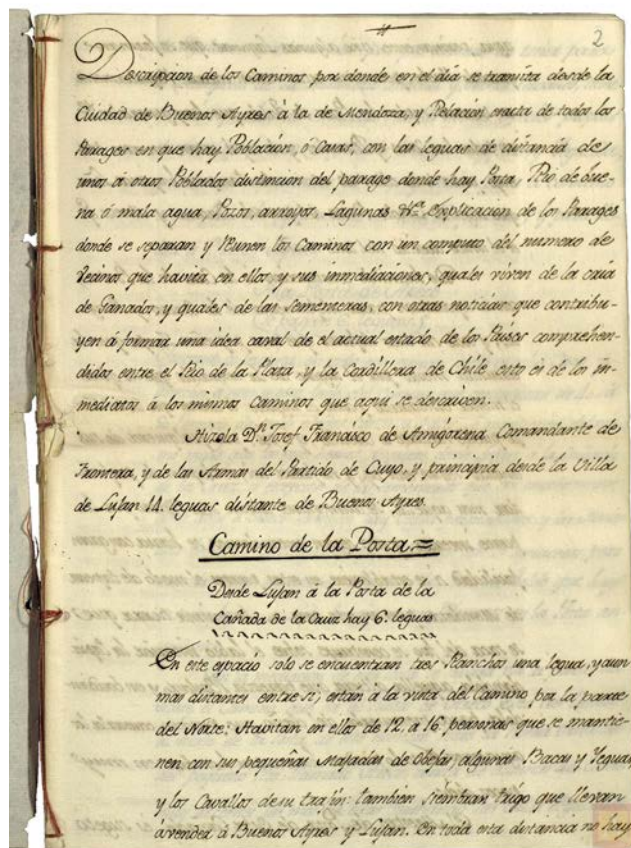 2
Descripcion de los Caminos por donde en el dia se transita desde la
Cuidad de Buenos Ayres à la de Mendoza, y Relacion exacta de todos los
Parages en que hay Poblacion, ó Casas, con las leguas de distancia de
unos á otros Poblados distincion del parage donde hay Posta, Rio de bue-
na ó mala agua, Pozos, arroyos, Lagunas &ª. Explicacion de los Parages
donde se separan y Reunen los Caminos con un computo del numero de
Vecinos que havita en ellos, y sus inmediaciones, quales viven de la cria
de Ganados, y quales de las sementeras, con otras noticias que contribu-
yen á formar una idea caval de el actual estado de los Paises comprehen-
didos entre el Rio de la Plata, y la Cordillera de Chile esto es de los in-
mediatos á los mismos caminos que aqui se descriven.
Hizola Dn. Josef Francisco de Amigorena Comandante de
Frontera, y de las Armas del Partido de Cuyo, y principia desde la Villa
de Lujan 14. leguas distante de Buenos Ayres.
Camino de la Posta =
Desde Lujan à la Posta de la
Cañada de la Cruz hay 6. leguas
En este espacio solo se encuentran tres Ranchos una legua, y aun
mas distantes entre si; estan à la vista del Camino por la parte
del Norte: Havitan en ellos de 12, a 16 personas que se mantie-
nen con sus pequeñas Majadas de Obejas, algunas Bacas y Yeguas,
y los Cavallos de su trajin: tambien siembran trigo que llevan
à vender à Buenos Ayres y Lujan. En toda esta distancia no hay